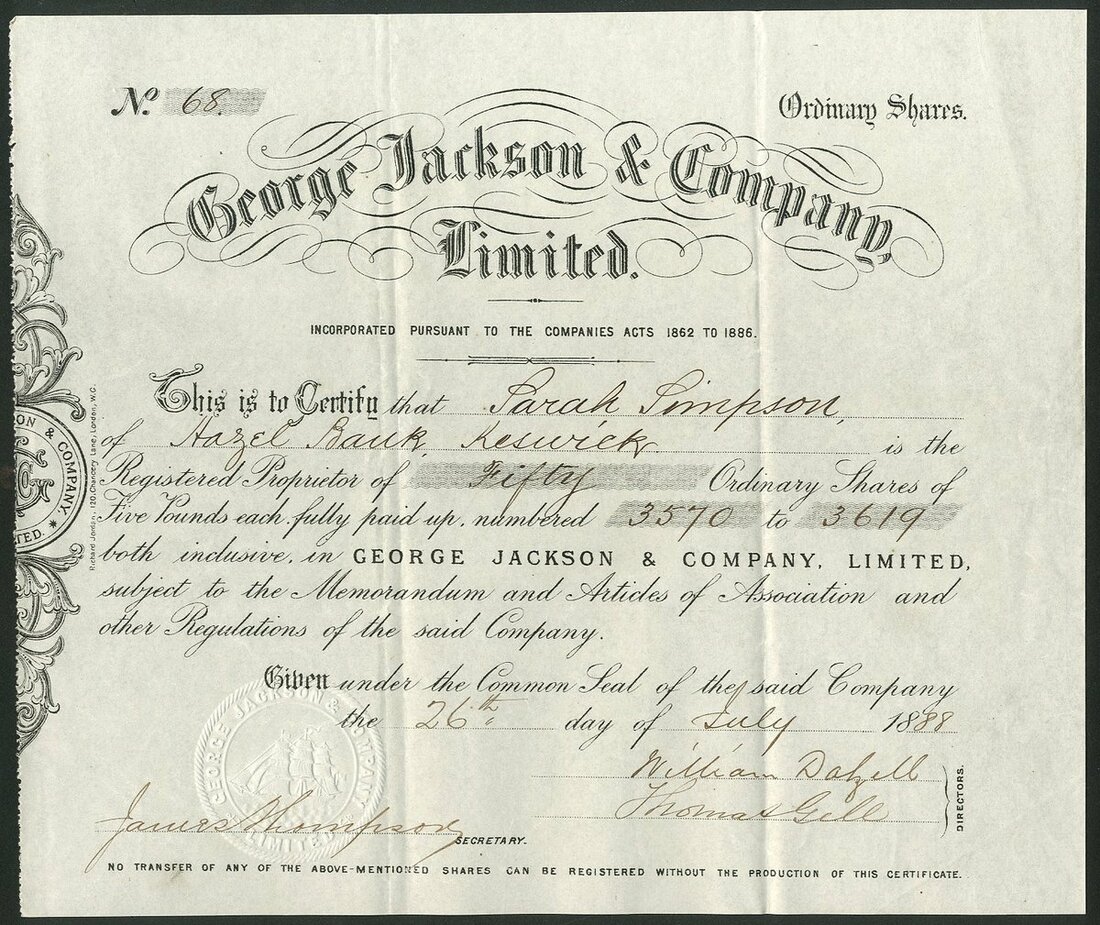 No. 68.
Ordinary Shares.
George Jackson & Company,
Limited.
INCORPORATED PURSUANT TO THE COMPANIES ACTS 1862 TO 1886.
This is to Certify that Sarah Simpson,
of Hazel Bank, Keswick is the
Registered Proprietor of Fifty Ordinary Shares of
Five Pounds each fully paid up, numbered 3570 to 3619
both inclusive, in GEORGE JACKSON & COMPANY, LIMITED,
subject to the Memorandum and Articles of Association and
other Regulations of the said Company.
Given under the Common Seal of the said Company
the 26th day of July 1888
William Dalzell
Thomas Gill
DIRECTORS.
James Thompson
SECRETARY.
NO TRANSFER OF ANY OF THE ABOVE-MENTIONED SHARES CAN BE REGISTERED WITHOUT THE PRODUCTION OF THIS CERTIFICATE.
GEORGE JACKSON & COMPANY
LIMITED
ON & COMPANY,
TED.
Richard Jordan, 120, Chancery Lane, London, W.C.